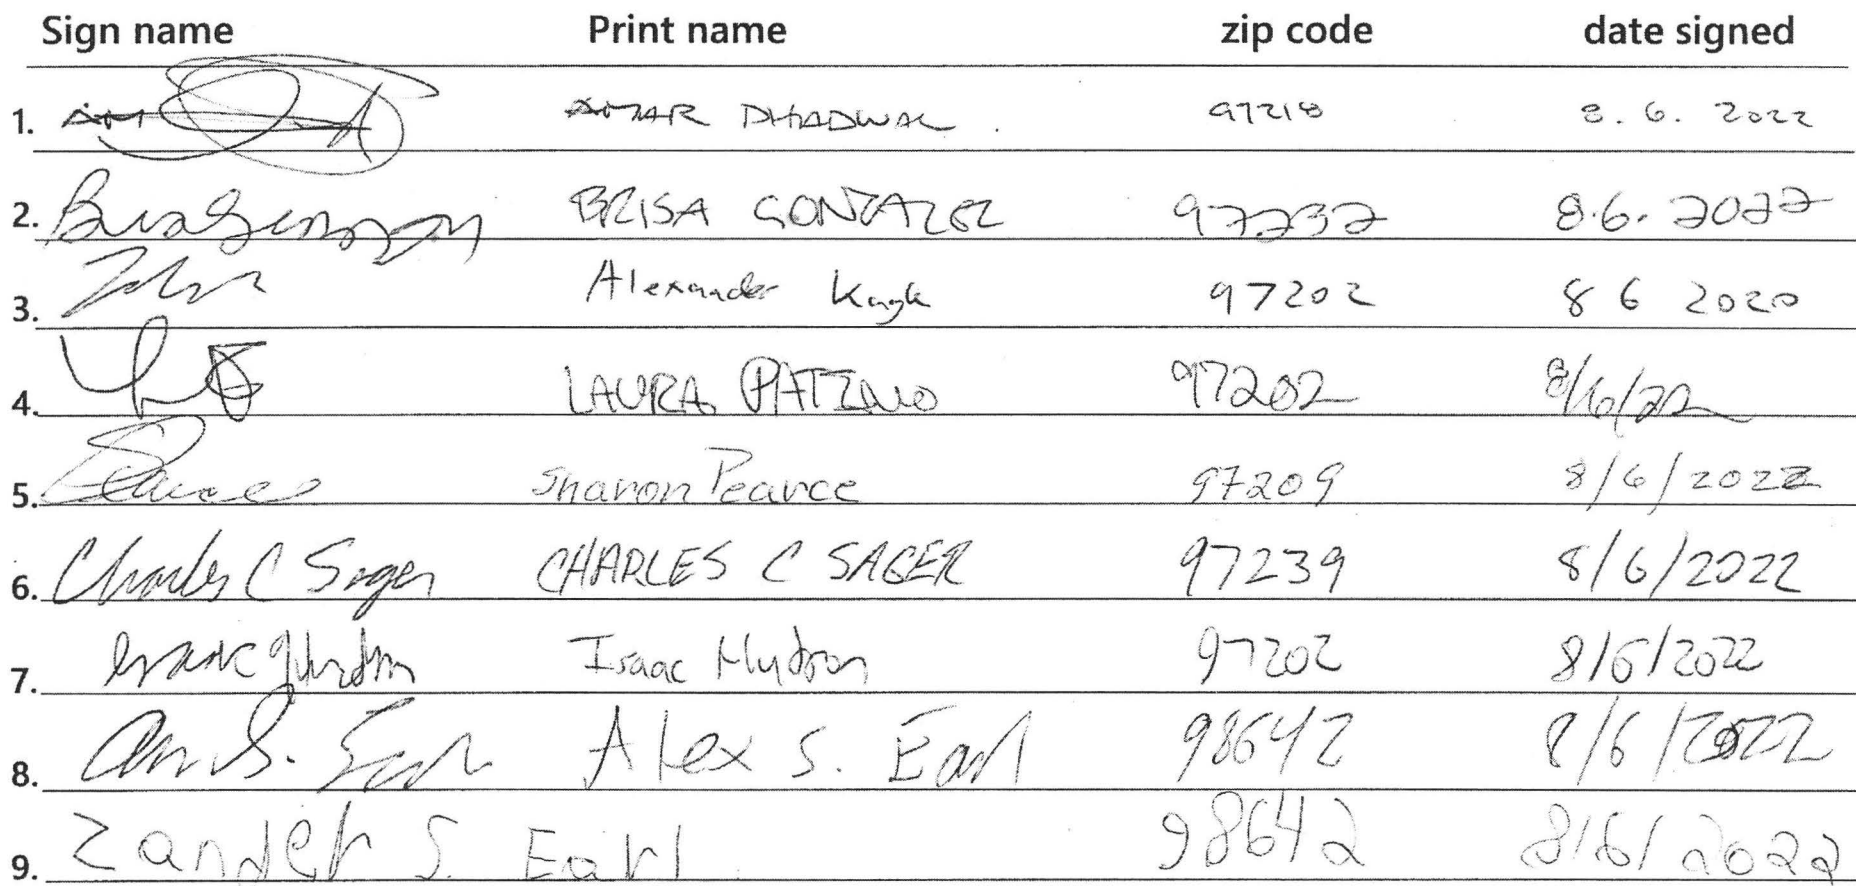 Sign name Print name zip code date signed
1. AMAR DHADWAL. 97218 8.6.2022
2. BRISA GONZALEZ 97232 8.6.2022
3. Alexander Kagle 97202 8 6 2020
4. LAURA PATINO 97202 8/6/22
5. Pearce Sharon Pearce 97209 8/6/2022
6. Charles C Sager CHARLES C SAGER 97239 8/6/2022
7. Isaac Hudson Isaac Hudson 97202 8/6/2022
8. Alex S. Earl 98642 8/6/2022
9. Zander S. Earl 98642 8/6/2022